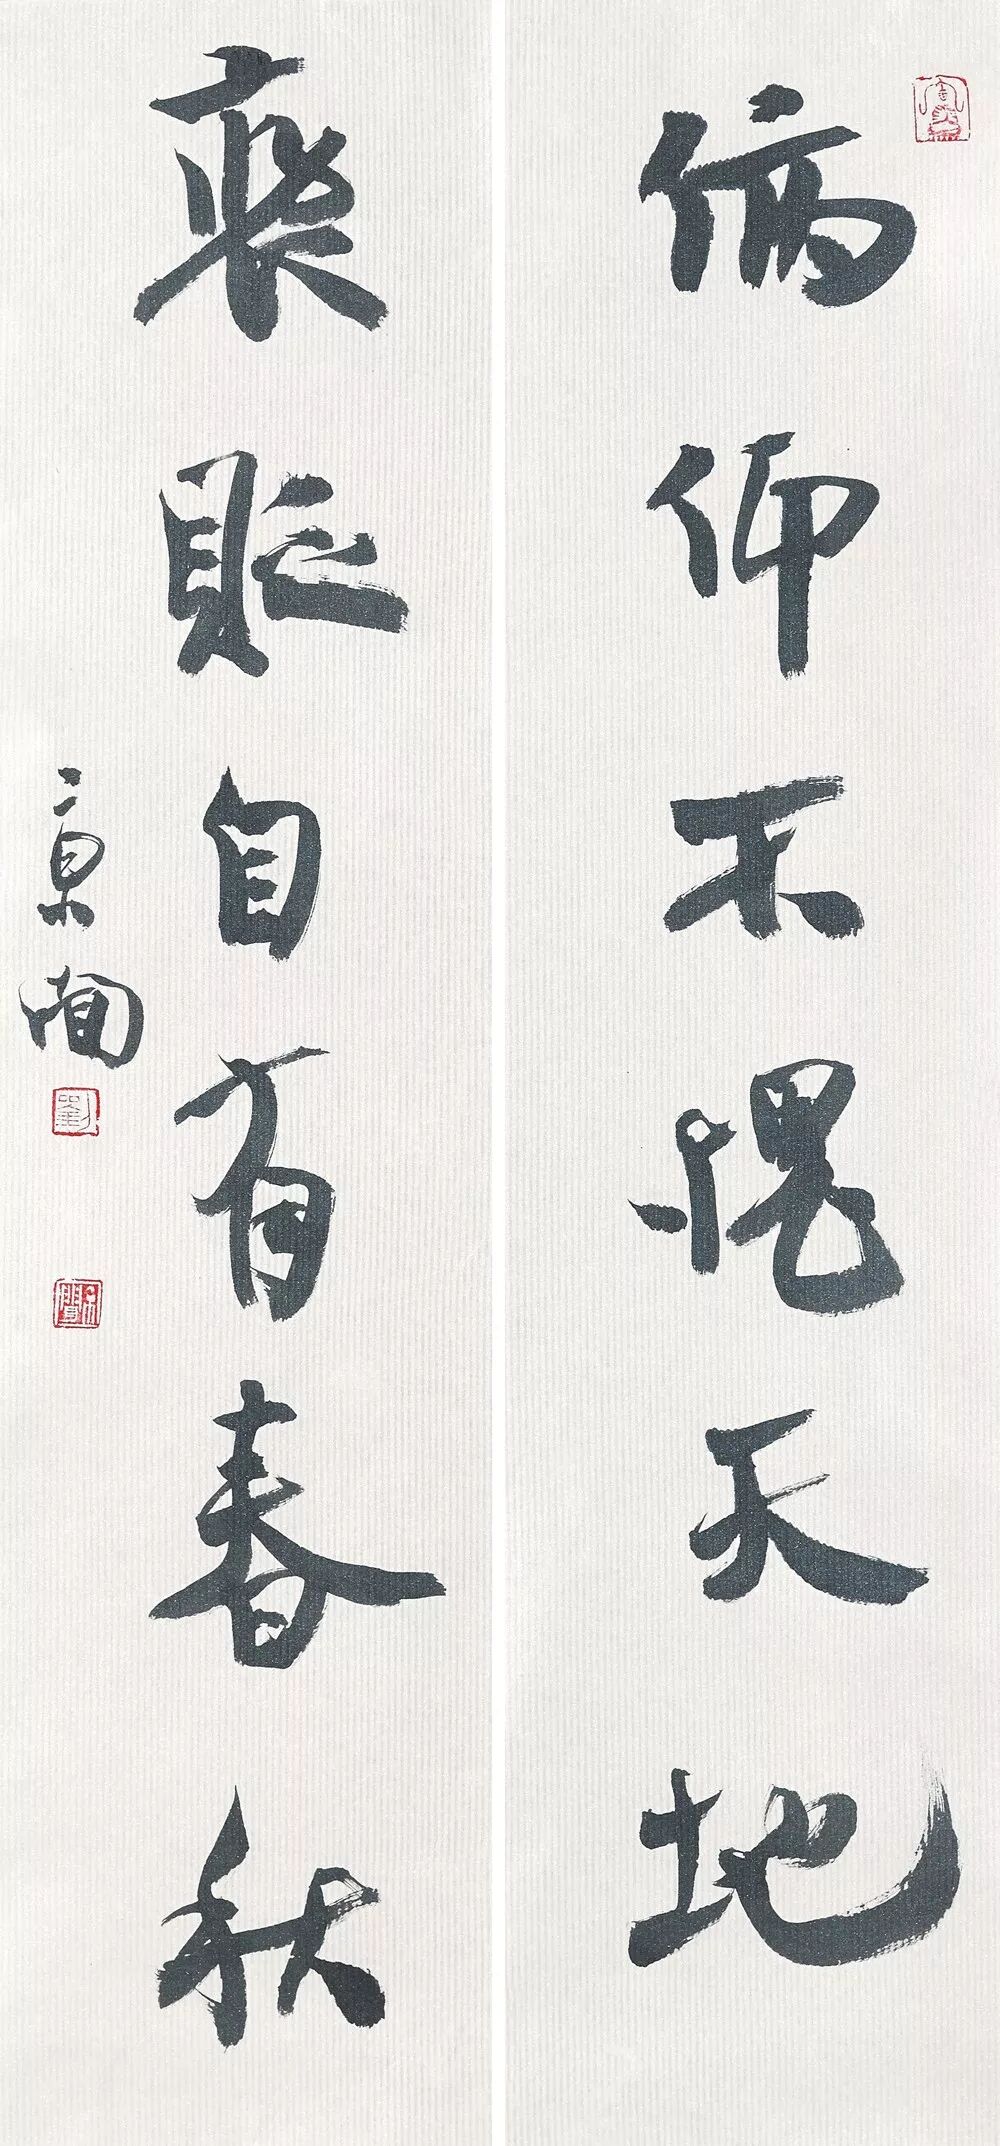 俯仰不愧天地
褒貶自有春秋
京聞
劉